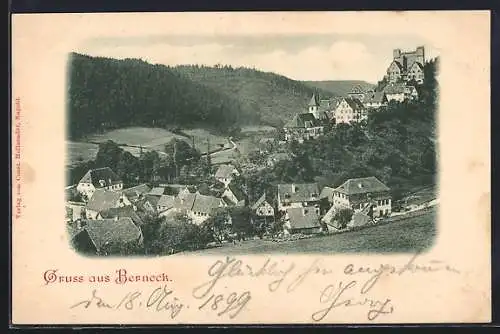 Verlag von Const. Hoffaecker, Nagold.
Gruss aus Berneck.
Glücklich hier angekommen
den 18. Aug. 1899
Georg